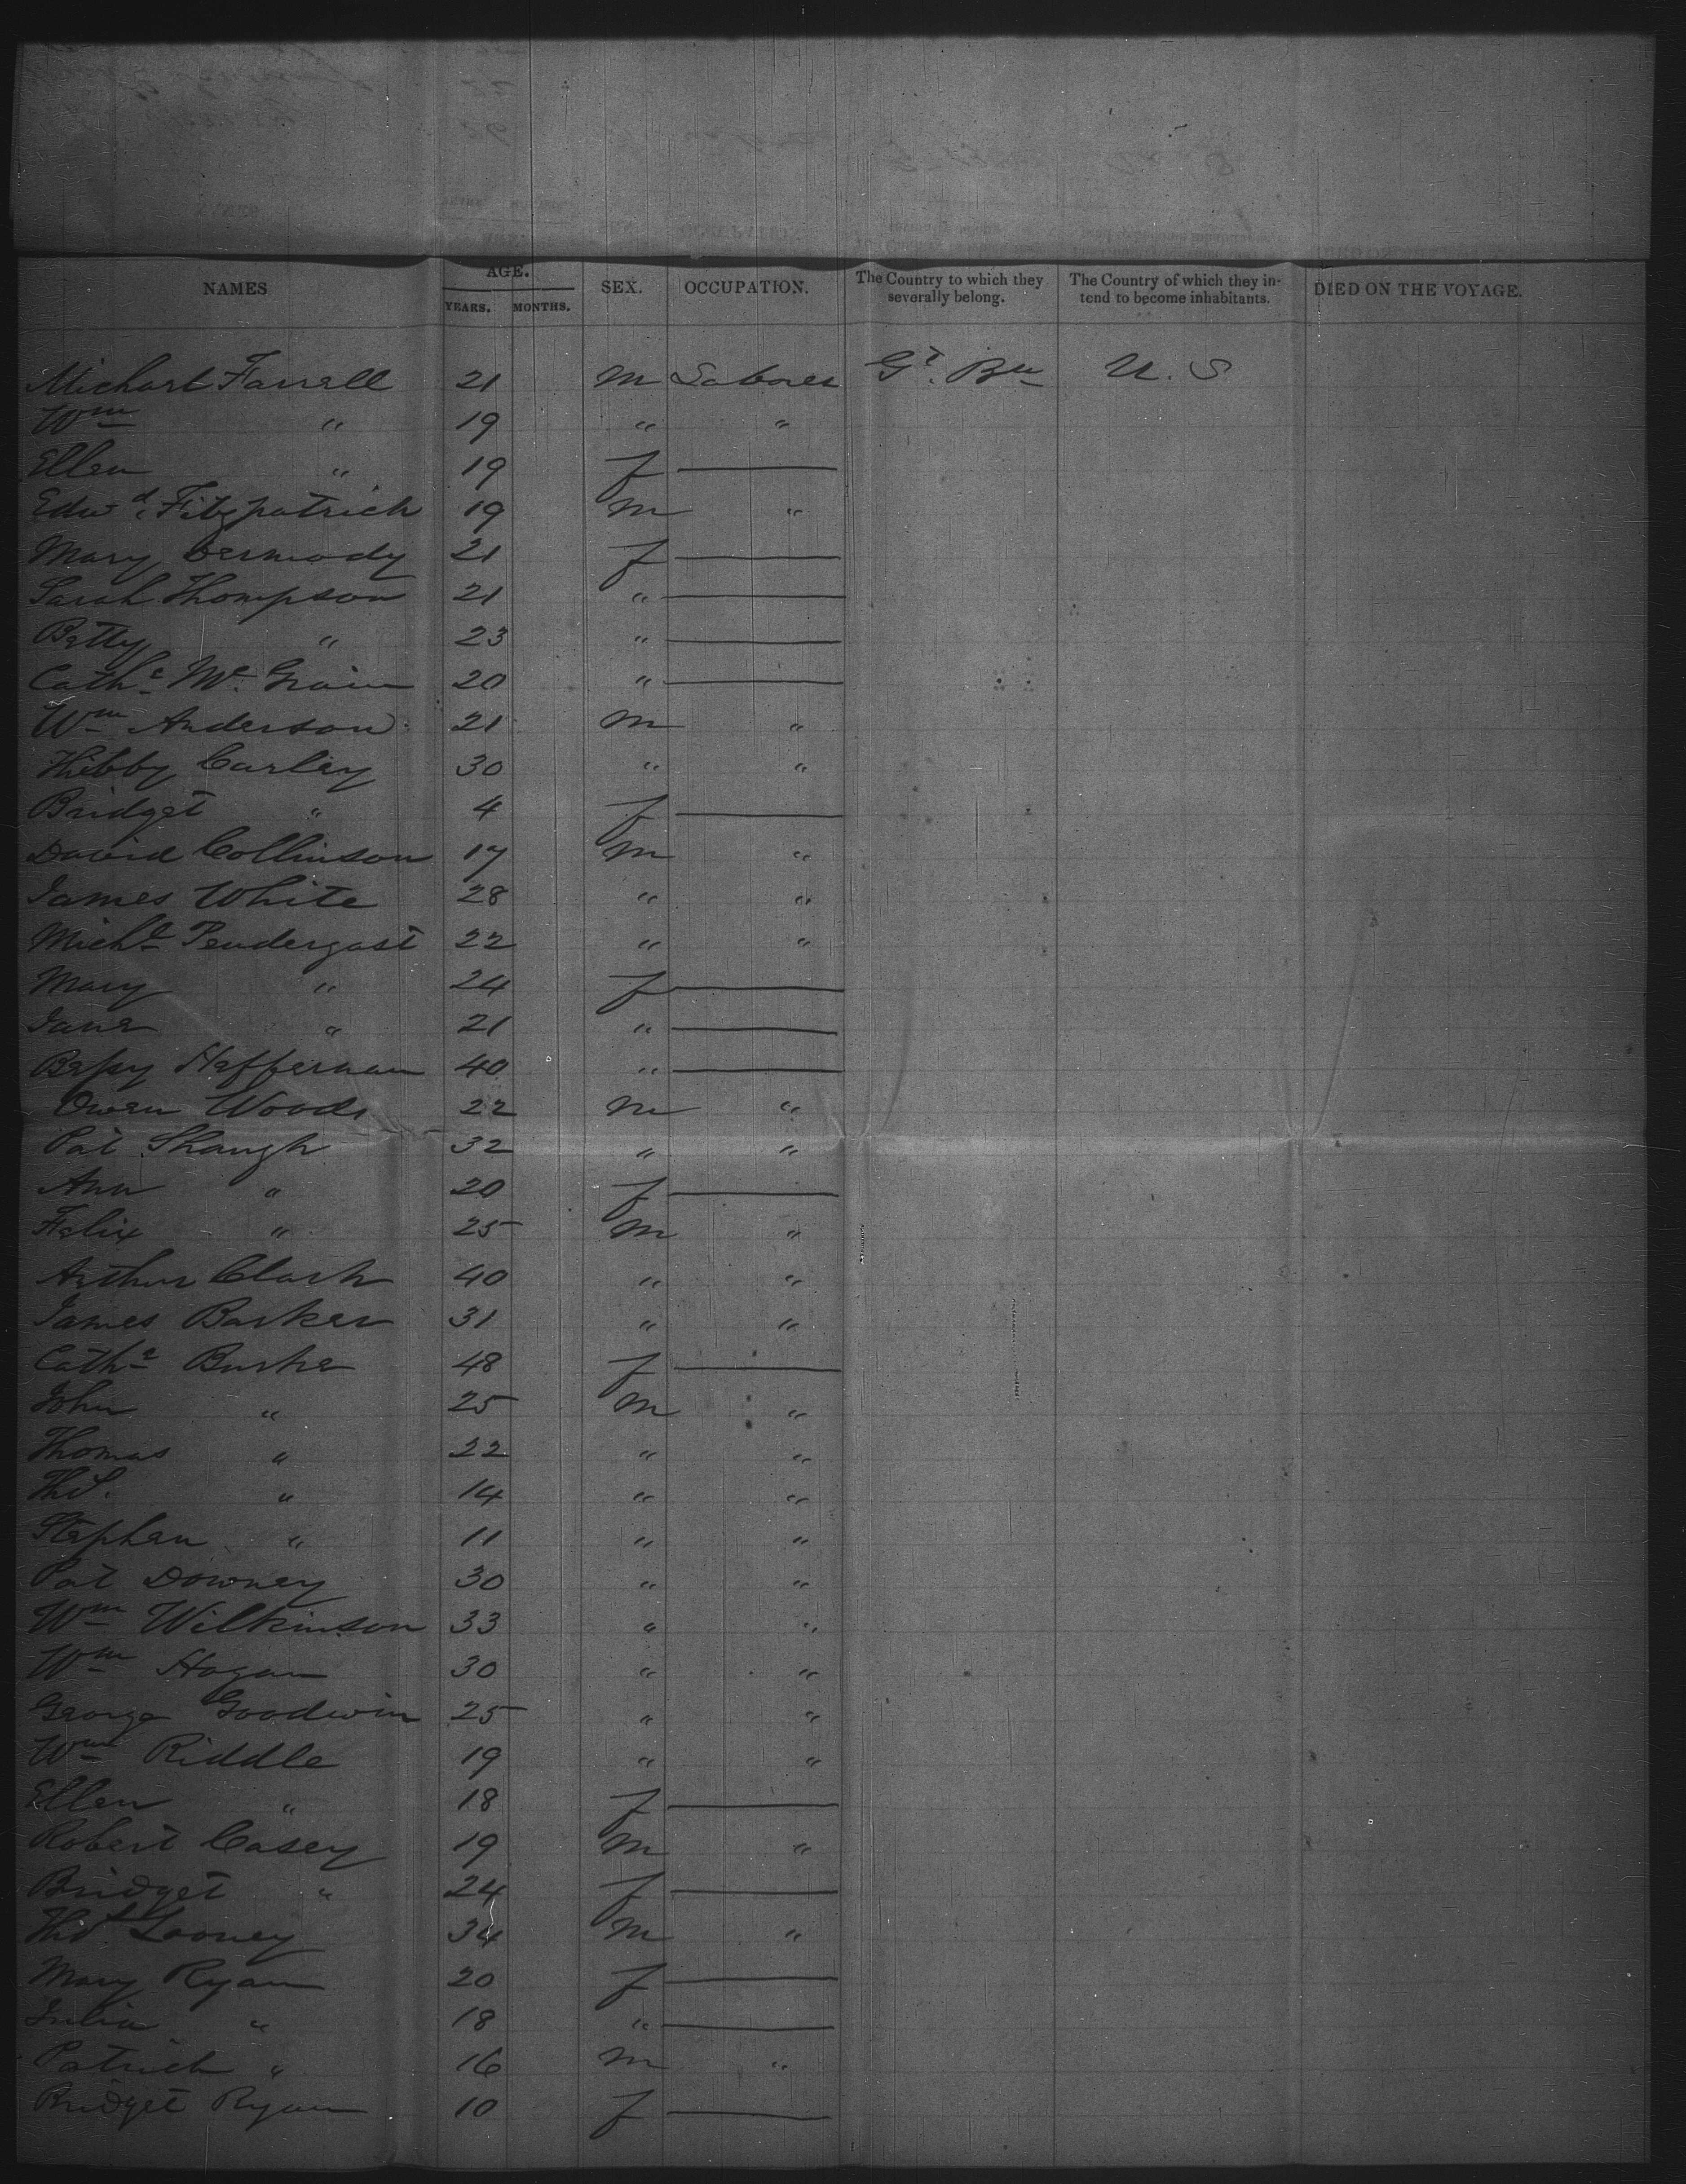 NAMES AGE. SEX. OCCUPATION. The Country to which they severally belong. The Country of which they intend to become inhabitants. DIED ON THE VOYAGE.
YEARS. MONTHS.
Michael Farrell 21 M Laborer Gt. Bn U.S
Wm " 19 " "
Ellen " 19 f
Edwd. Fitzpatrick 19 M "
Mary Cermody 21 f
Sarah Thompson 21 "
Betty " 23 "
Cathe Mc. Grain 20 "
Wm Anderson 21 M "
Hibby Carley 30 " "
Bridget " 4 f
David Collinson 17 M "
James White 28 " "
Michl Pendergast 22 " "
Mary " 24 f
Jane " 21 "
Bessy Heffernan 40 "
Owen Woods 22 M "
Pat Shaugh 32 " "
Ann " 20 f
Felix " 25 M "
Arthur Clark 40 " "
James Barker 31 " "
Cathe Burke 48 f
John " 25 M "
Thomas " 22 " "
Thos. " 14 " "
Stephen " 11 " "
Pat Downey 30 " "
Wm Wilkinson 33 " "
Wm Hogan 30 " "
George Goodwin 25 " "
Wm Riddle 19 " "
Ellen " 18 f
Robert Casey 19 M "
Bridget " 24 f
Thos Looney 34 M "
Mary Ryan 20 f
Julia " 18 "
Patrick " 16 M "
Bridget Ryan 10 f